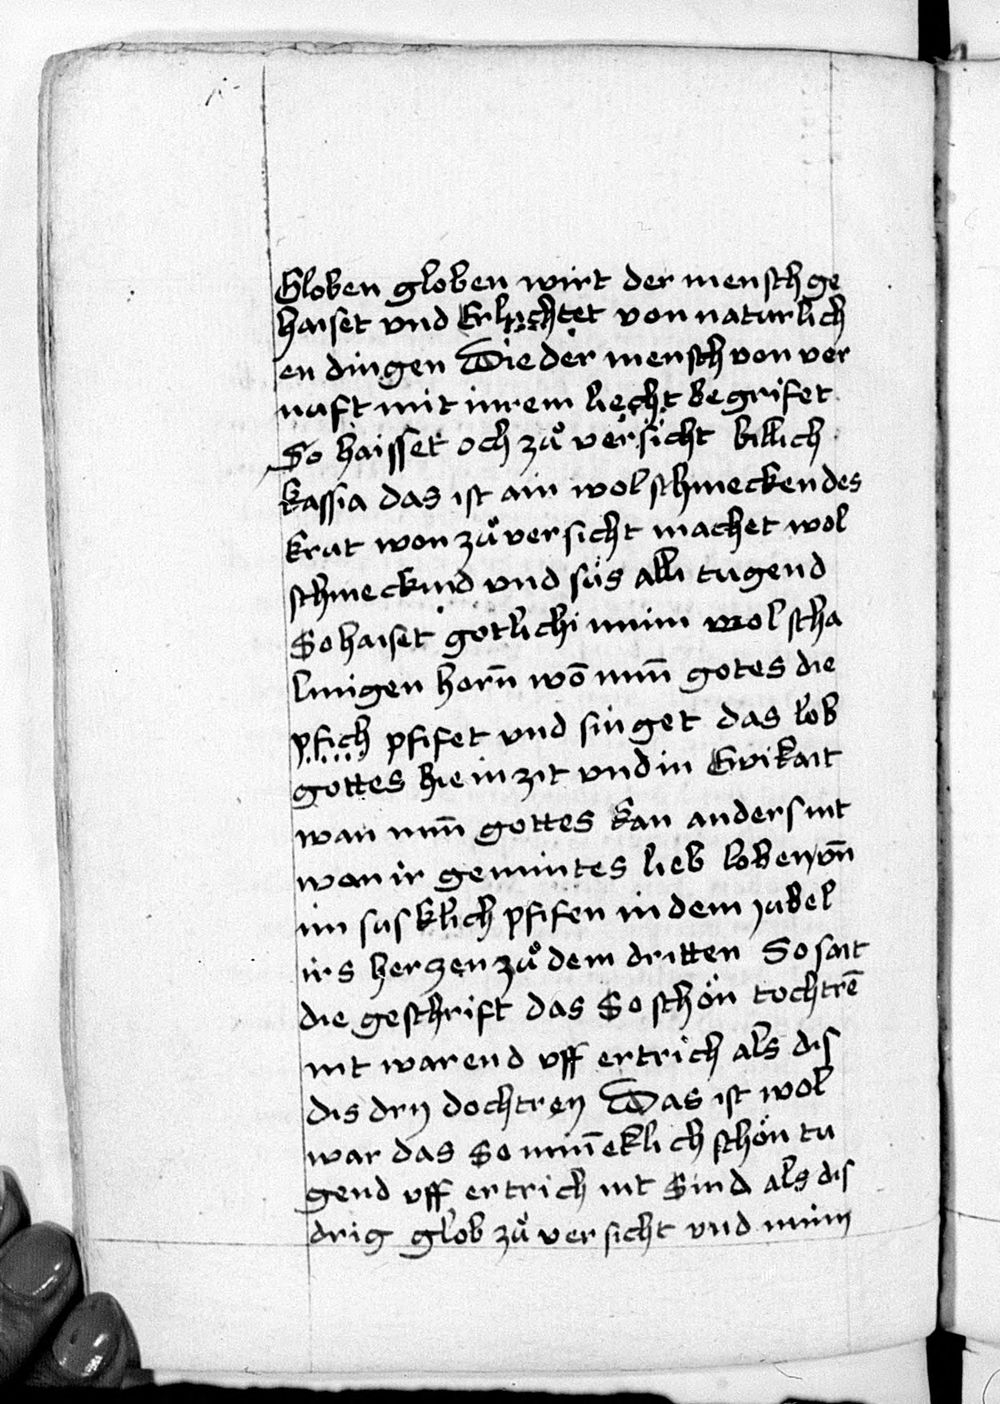 Globen globen wirt der mensch ge
haiset vnd Erlüchtet von naturlich
en dingen Wie der mensch von ver
nuft mit inrem liecht begrifet
So haisset och zuͦ versicht billich
kassia das ist ain wol schmeckendes
krut won zuͦ versicht machet wol
schmeckind vnd süs alli tugend
So haiset gotlichi minn wol scha
lmigen horn̄ wō min̄ gotes die
pfich pfifet vnd singet das lob
gottes hie in zit vnd in Ewikait
wan min̄ gottes kan anders nit
won ir gemintes lieb loben vn̄
im susklich pfifen in dem jubel
irs herzen zuͦ dem dritten So sait
die geschrift das So schön tochtrē
nit warend vff ertrich als dis
dis dry dochtren Was ist wol
war das So min̄eklich schön tu
gend vff ertrich nit Sind als dis
drig glob zuͦ versicht vnd minn